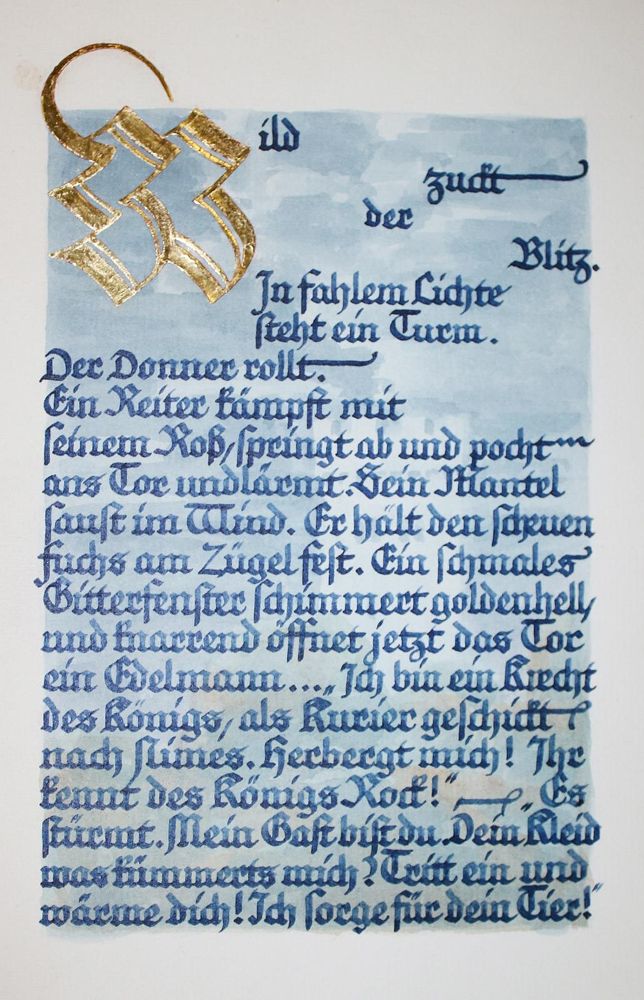 Wild
zuckt
der
Blitz.
In fahlem Lichte
steht ein Turm.
Der Donner rollt.
Ein Reiter kämpft mit
seinem Roß/ springt ab und pocht
ans Tor und lärmt. Sein Mantel
saust im Wind. Er hält den scheuen
fuchs am Zügel fest. Ein schmales
Gitterfenster schimmert goldenhell/
und knarrend öffnet jetzt das Tor
ein Edelmann....„Ich bin ein Knecht
des Königs/ als Kurier geschickt
nach Nimes. Herbergt mich! Ihr
kennt des Königs Rock!“ — „Es
stürmt. Mein Gast bist du. Dein Kleid
was kümmerts mich? Tritt ein und
wärme dich! Ich sorge für dein Tier!“